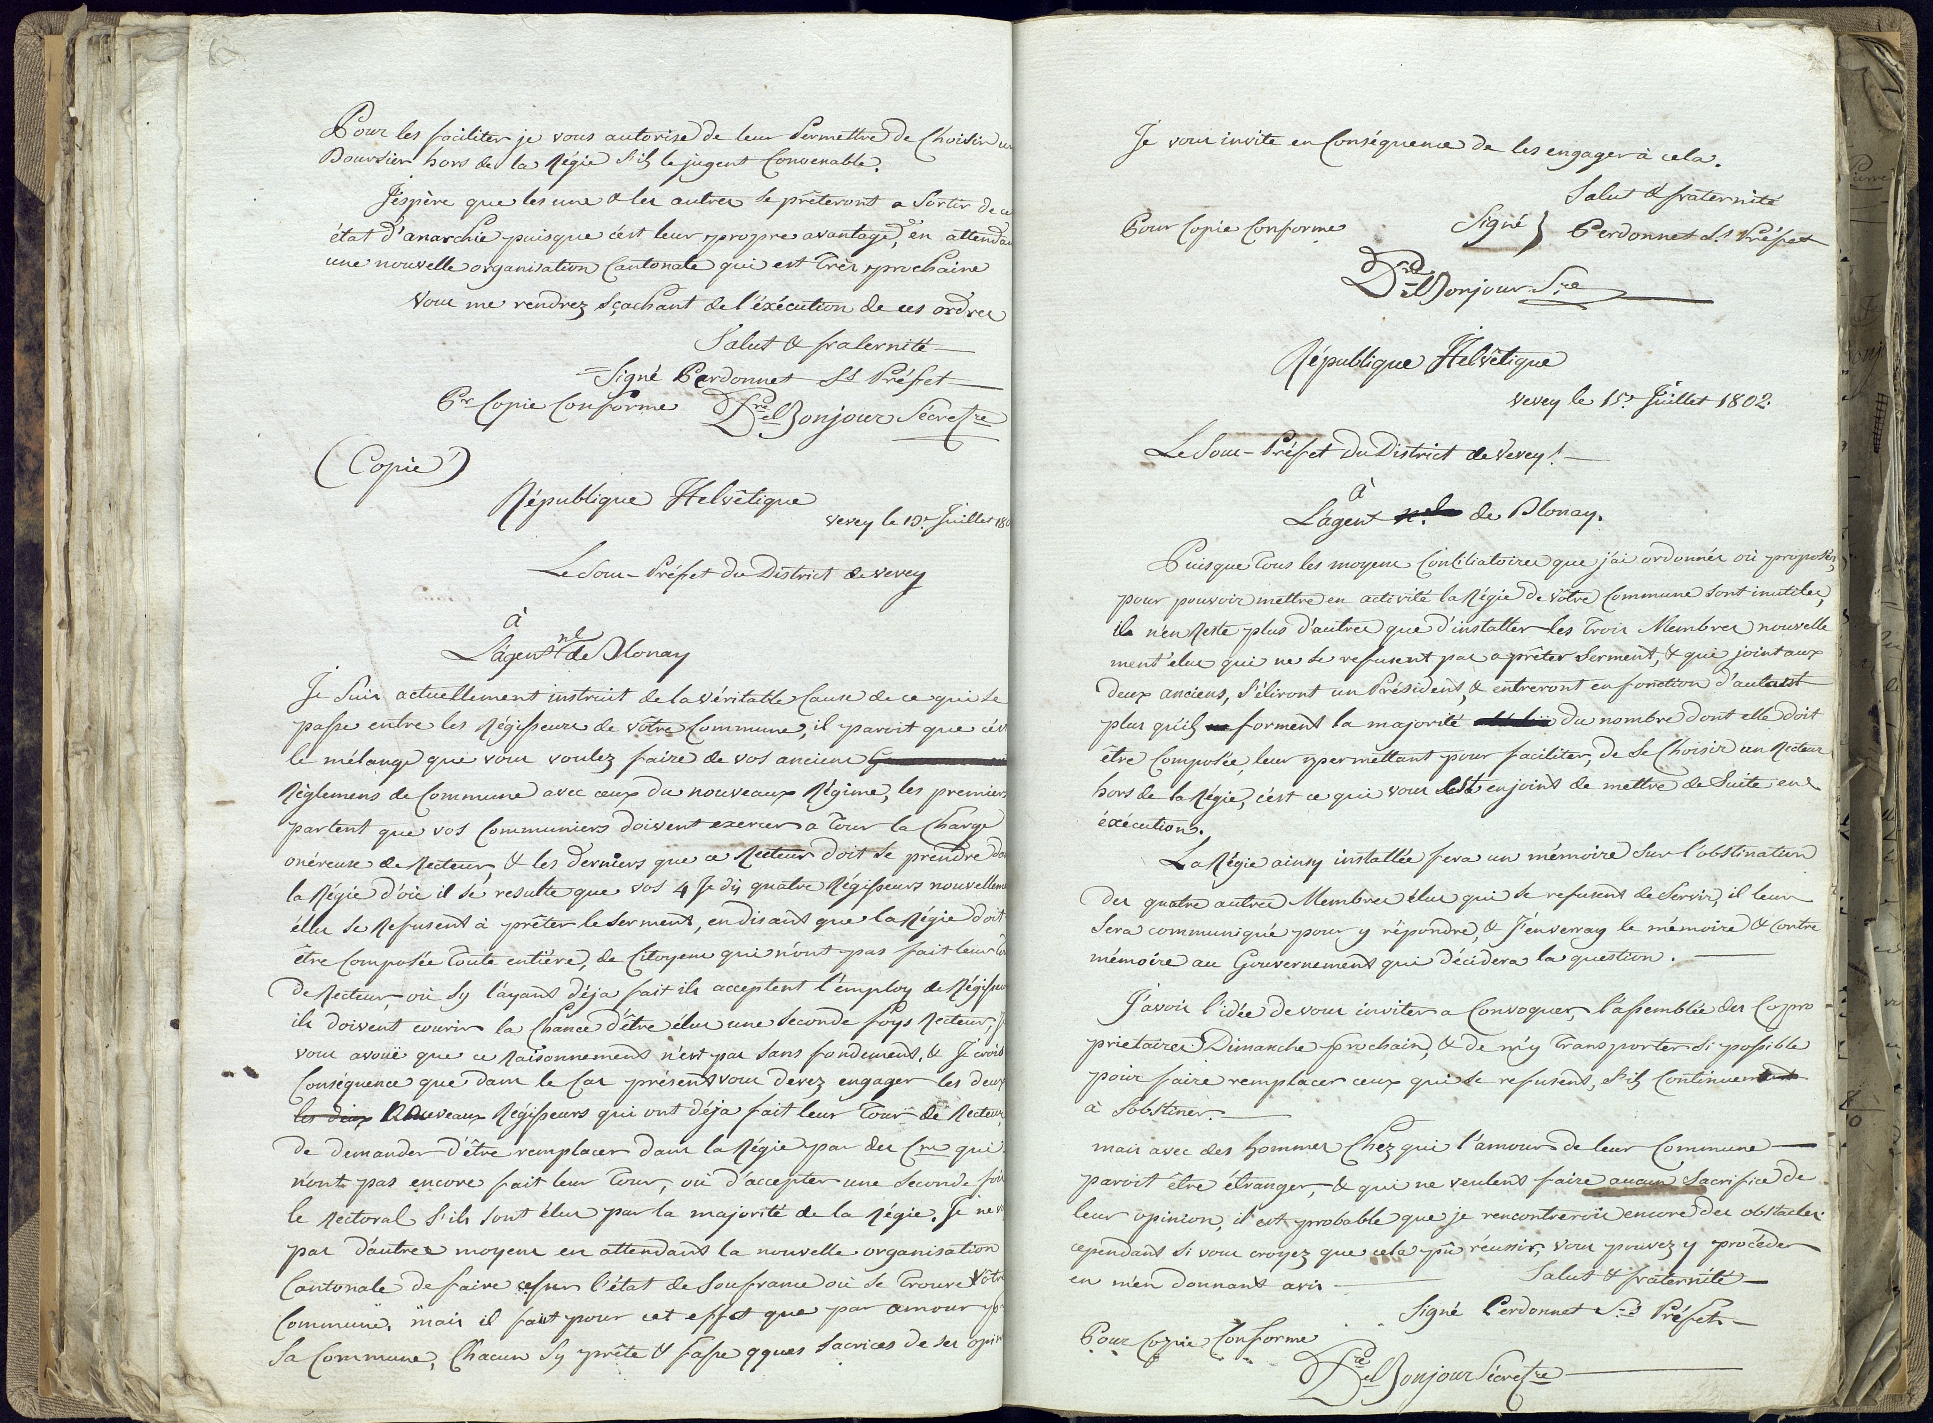 Pour les faciliter je vous autorise de leur Permettre de Choisir un
Boursier hors de la Régie S'ils le jugent Convenable.
J'espère que les uns & les autres se prêteront a Sortir de
état d'anarchie puisque c'est leur propre avantage, en attendan
une nouvelle organisation Cantonale qui est Très prochaine
Vous me rendrez sçachant de l'éxécution de ces ordres
Salut & fraternité
Signé Perdonnet Ss Préfet
Pr Copie Conforme Bonjour Sécretre
(Copie)
République Helvêtique
Vevey le 10r Juillet 180
Le Sous-Préfet du District de Vevey
à
L'agent nl de Blonay
Je Suis actuellement instruit de la véritable Cause de ce qui se
passe entre les Régisseurs de vôtre Commune, il paroit que c'es
le mélange que vous voulez faire de vos anciens
Règlemens de Commune avec ceux du nouveaux Régime, les premiers
partent que vos Communiers doivent exercer a Tour la Charge
onéreuse de Recteur, & les derniers que ce Recteur doit se prendre da
la Régie d'où il se résulte que vos 4 Je dis quatre Régisseurs nouvelleme
élus se Refusent à prêter le Serment, en disant que la Régie doit
être Composée Toute entière, de Citoyens qui n'ont pas fait leur To
de Recteur, où Sy l'ayant déja fait ils acceptent l'employ de Régisseu
ils doivent courir la Chance d'être élus une Seconde foys Recteur, J
vous avoüe que ce Raisonnement n'est pas Sans fondement, & J'crois
Conséquence que dans le Cas présent vous devez engager les deux
les deux Nouveaux Régisseurs qui ont déja fait leur Tour de Recteur
de demander d'être remplacer dans la Régie par des Cens qui
n'ont pas encore fait leur Tour, où d'accepter une Seconde foi
le Rectorat S'ils Sont élus par la majorité de la Régie. Je ne v
pas d'autres moyens en attendant la nouvelle organisation
Cantonale de faire cesser l'état de Soufrance où se Trouve Vôtre
Commune, mais il faut pour cet effet que par amour po
Sa Commune, Chacun Sy prête & fasse qques Sacrices de Ses opin
Je vous invite en Conséquence de les engager à cela.
Salut & fraternité
Pour Copie Conforme Signé } Perdonnet Ss Préfet
Bonjour Sre
République Helvêtique
Vevey le 15r Juillet 1802.
Le Sous-Préfet Du District de Vevey! —
à
L'agent n.l de Blonay.
Puisque Tous les moyens Conciliatoires que j'ai ordonnés où proposés,
pour pouvoir mettre en activité la Régie de Vôtre Commune sont inutiles,
il n'en Reste plus d'autres que d'installer les Trois Membres nouvelle
ment élus qui ne se refusent pas a prêter Serment, & qui joint aux
deux anciens, S'éliront un Président, & entreront en fonction d'autant
plus qu'ils forment la majorité du nombre dont elle doit
être Composée, leur permettant pour faciliter, de Se Choisir un Recteur
hors de la Régie, c'est ce qui vous est enjoint de mettre de Suite en
éxécution.
La Régie ainsy installée fera un mémoire Sur l'obstination
des quatre autres Membres élus qui se refusent de Servir, il leur
Sera communiqué pour y répondre, & J'enverray le mémoire & Contre
mémoire au Gouvernement qui décidera la question. —
J'avois l'idée de vous inviter a Convoquer l'assemblée des Copro
prietaires Dimanche prochain, & de m'y Transporter Si possible
pour faire remplacer ceux qui se refusent, S'ils Continuent
à S'obstiner. —
mais avec des hommes Chez qui l'amour de leur Commune
paroit être étranger, & qui ne veulent faire aucun Sacrifice de
leur opinion, il est probable que je rencontrerois encore des obstacles
cependant Si vous croyez que cela pû réussir, vous pouvez y procéder
en m'en donnant avis — Salut & fraternité —
Signé Perdonnet Ss Préfet —
Pour Copie Conforme
Bonjour Sécretre